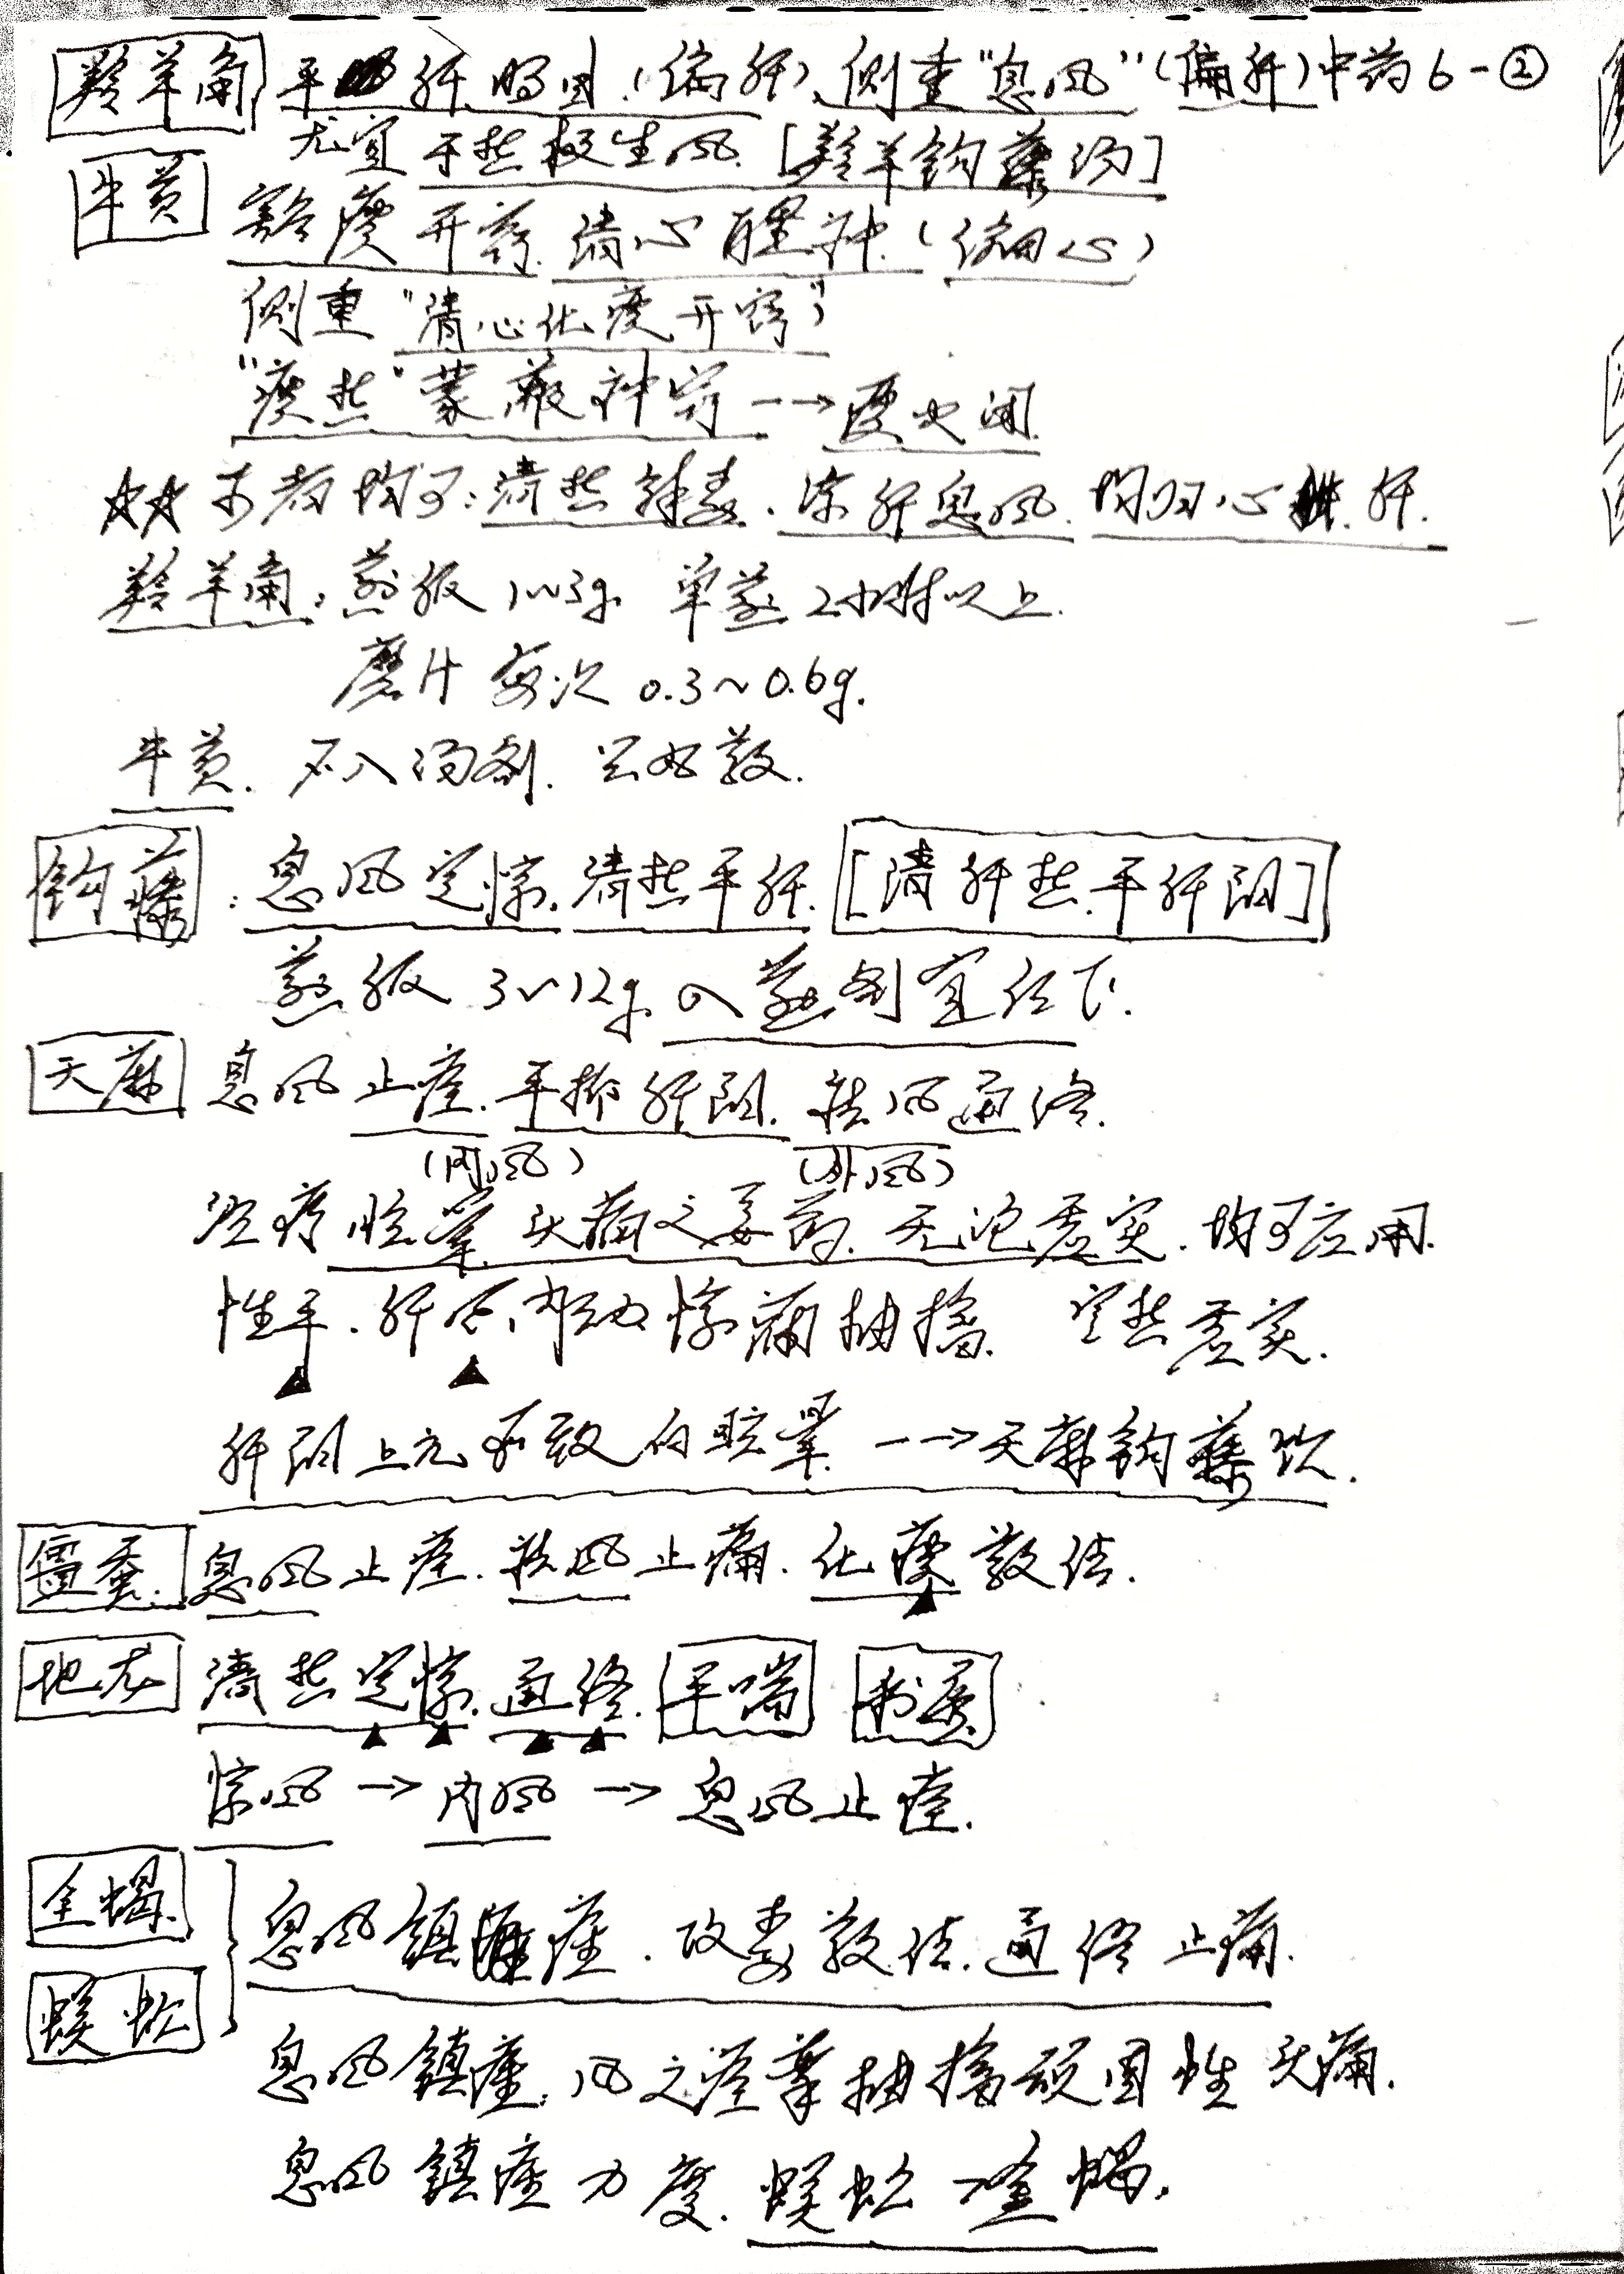 羚羊角 平肝 明目(偏肝)、侧重"息风"(偏肝) 中药6-②
尤宜于热极生风.[羚羊钩藤汤]
牛黄 豁痰开窍.清心醒神.(偏心)
侧重"清心化痰开窍"
"痰热"蒙蔽神窍→痰火闭.
☆☆ 两者均可:清热解毒.凉肝息风.均归心.肝.
羚羊角:煎服1~3g.单煎2小时以上.
磨汁 每次0.3~0.6g.
牛黄.不入汤剂.只丸散.
钩藤:息风定惊.清热平肝.[清肝热.平肝阳]
煎服 3~12g.入煎剂宜后下.
天麻 息风止痉.平抑肝阳.祛风通络.
(内风) (外风)
治疗眩晕.头痛之要药.无论虚实.均可应用.
性平.肝风内动惊痫抽搐. 寒热虚实.
肝阳上亢所致的眩晕→天麻钩藤饮.
僵蚕.息风止痉.祛风止痛.化痰散结.
地龙 清热定惊.通络.平喘 利尿
惊风→内风→息风止痉.
全蝎.
息风镇痉.攻毒散结.通络止痛.
蜈蚣
息风镇痉:风之痉挛抽搐顽固性头痛.
息风镇痉力度.蜈蚣>全蝎.